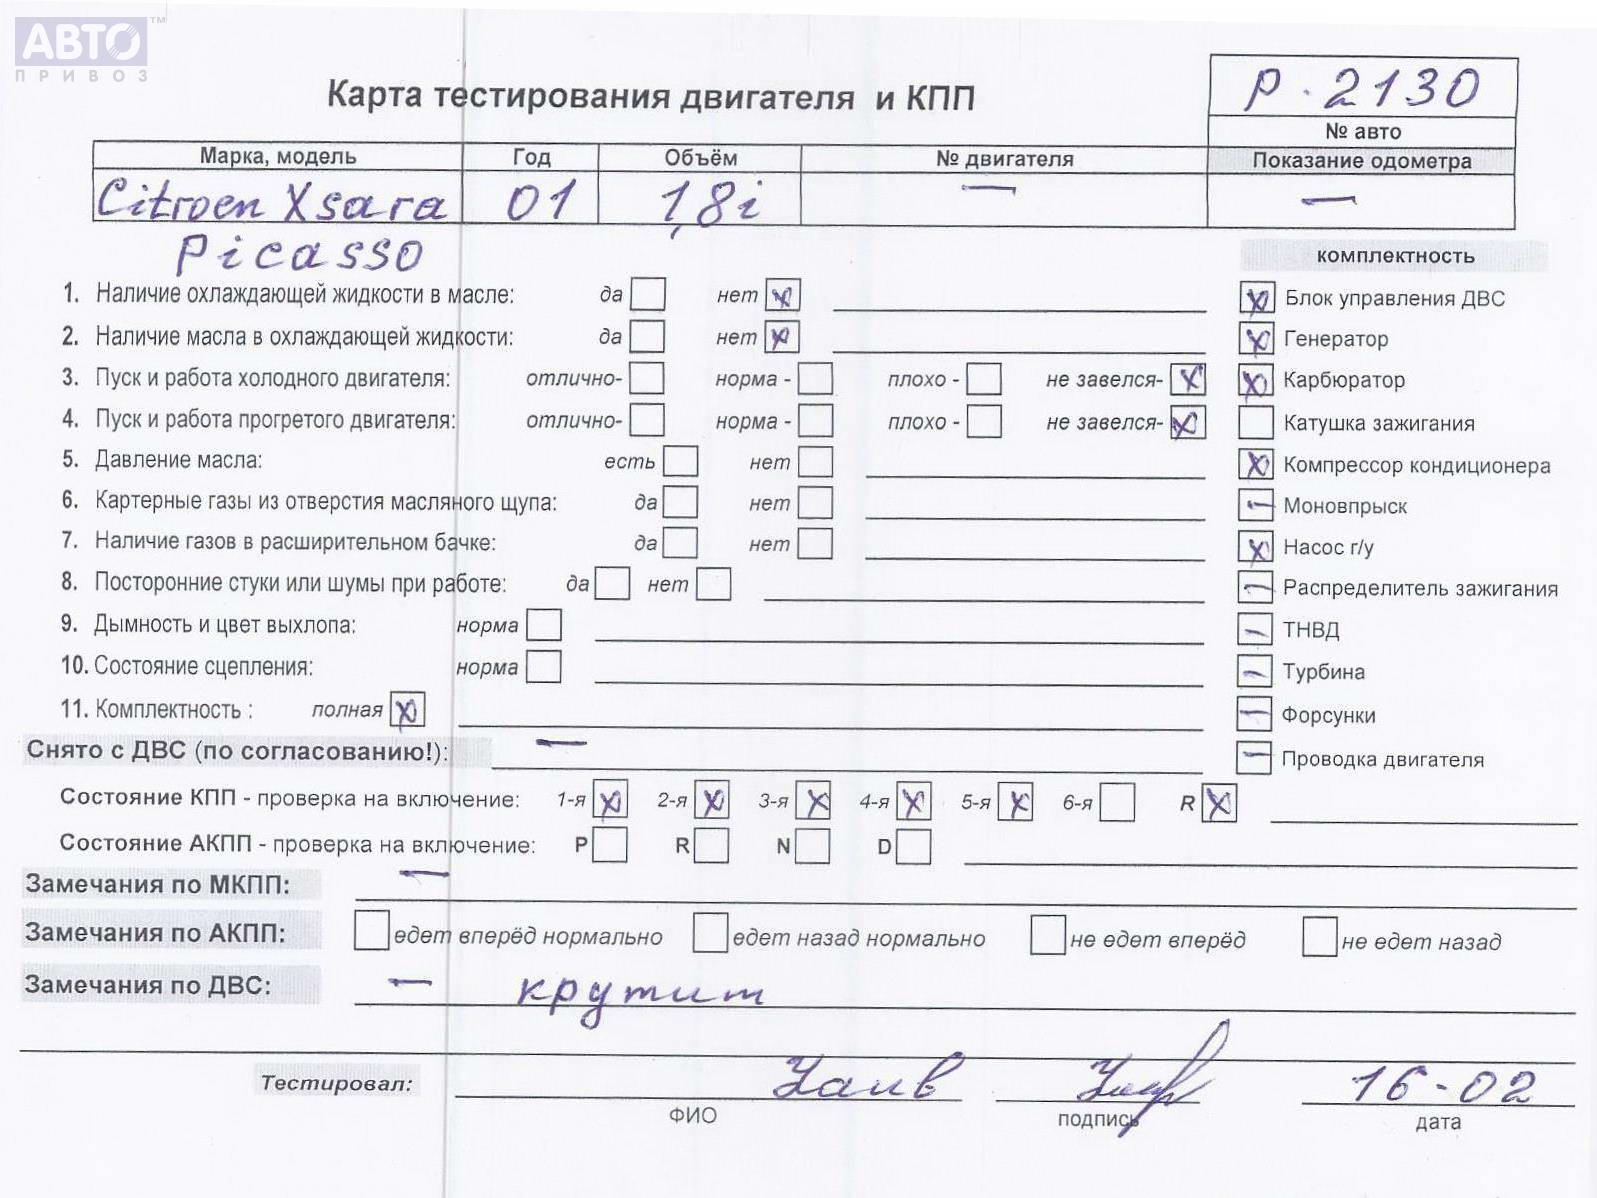 АВТО™
ПРИВОЗ
Карта тестирования двигателя и КПП
P. 2130
№ авто
Марка, модель Год Объём № двигателя Показание одометра
Citroen Xsara 01 1,8i — —
Picasso
комплектность
1. Наличие охлаждающей жидкости в масле: да нет x
Блок управления ДВС
2. Наличие масла в охлаждающей жидкости: да нет x
Генератор
3. Пуск и работа холодного двигателя: отлично- норма - плохо - не завелся- x
Карбюратор
4. Пуск и работа прогретого двигателя: отлично- норма - плохо - не завелся- x
Катушка зажигания
5. Давление масла: есть нет
Компрессор кондиционера
6. Картерные газы из отверстия масляного щупа: да нет
Моновпрыск
7. Наличие газов в расширительном бачке: да нет
Насос г/у
8. Посторонние стуки или шумы при работе: да нет
Распределитель зажигания
9. Дымность и цвет выхлопа: норма
ТНВД
10. Состояние сцепления: норма
Турбина
11. Комплектность : полная x
Форсунки
Снято с ДВС (по согласованию!): —
Проводка двигателя
Состояние КПП - проверка на включение: 1-я x 2-я x 3-я x 4-я x 5-я x 6-я R x
Состояние АКПП - проверка на включение: P R N D
Замечания по МКПП: —
Замечания по АКПП: едет вперёд нормально едет назад нормально не едет вперёд не едет назад
Замечания по ДВС: — крутит
Тестировал: 16-02
ФИО подпись дата